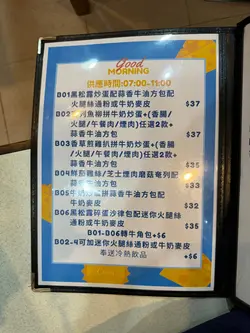 Good
MORNING
供應時間:07:00-11:00
B01黑松露炒蛋配蒜香牛油方包配
火腿絲通粉或牛奶麥皮 $37
魚柳拼牛奶炒蛋+(香腸
/火腿/午餐肉/煙肉)任選2款+
蒜香牛油方包 $37
B03香草煎雞扒拼牛奶炒蛋+(香腸
/火腿/午餐肉/煙肉)任選2款+
蒜香牛油方包 $35
雞絲/芝士煙肉磨菇奄列配
蒜香牛油方包 $33
拼蒜香牛油方包配
牛奶麥皮 $32
B06黑松露碎蛋沙律包配迷你火腿絲
通粉或牛奶麥皮 $35
B01-B06轉牛角包+$6
B02-4可加迷你火腿絲通粉或牛奶麥皮
奉送冷熱飲品 +$6